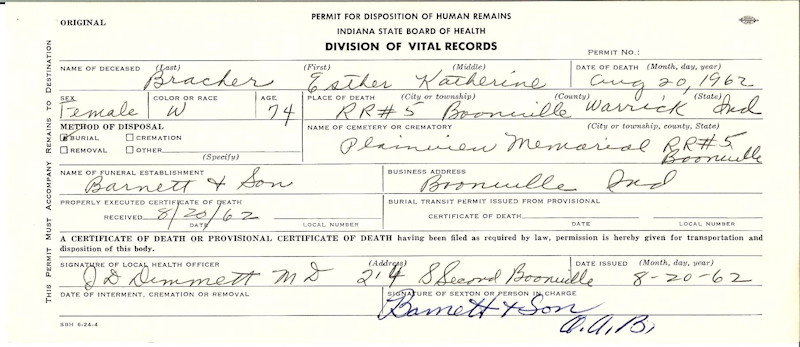 ORIGINAL
PERMIT FOR DISPOSITION OF HUMAN REMAINS
INDIANA STATE BOARD OF HEALTH
DIVISION OF VITAL RECORDS
PERMIT NO.:
THIS PERMIT MUST ACCOMPANY REMAINS TO DESTINATION
NAME OF DECEASED (Last) (First) (Middle) DATE OF DEATH (Month, day, year)
Bracher Esther Katherine Aug 20, 1962
SEX COLOR OR RACE AGE PLACE OF DEATH (City or township) (County) (State)
Female W 74 RR#5 Boonville Warrick Ind
METHOD OF DISPOSAL NAME OF CEMETERY OR CREMATORY (City or township, county, State)
BURIAL CREMATION
REMOVAL OTHER
(Specify)
Plainview Memorial RR#5
Boonville
NAME OF FUNERAL ESTABLISHMENT BUSINESS ADDRESS
Barnett & Son Boonville Ind
PROPERLY EXECUTED CERTIFICATE OF DEATH BURIAL TRANSIT PERMIT ISSUED FROM PROVISIONAL
RECEIVED 8/20/62 CERTIFICATE OF DEATH
DATE LOCAL NUMBER DATE LOCAL NUMBER
A CERTIFICATE OF DEATH OR PROVISIONAL CERTIFICATE OF DEATH having been filed as required by law, permission is hereby given for transportation and
disposition of this body.
SIGNATURE OF LOCAL HEALTH OFFICER (Address) DATE ISSUED (Month, day, year)
J D Dimmett M D 214 S Second Boonville 8-20-62
DATE OF INTERMENT, CREMATION OR REMOVAL SIGNATURE OF SEXTON OR PERSON IN CHARGE
Barnett & Son
O.A.B.
SBH 6-24-4